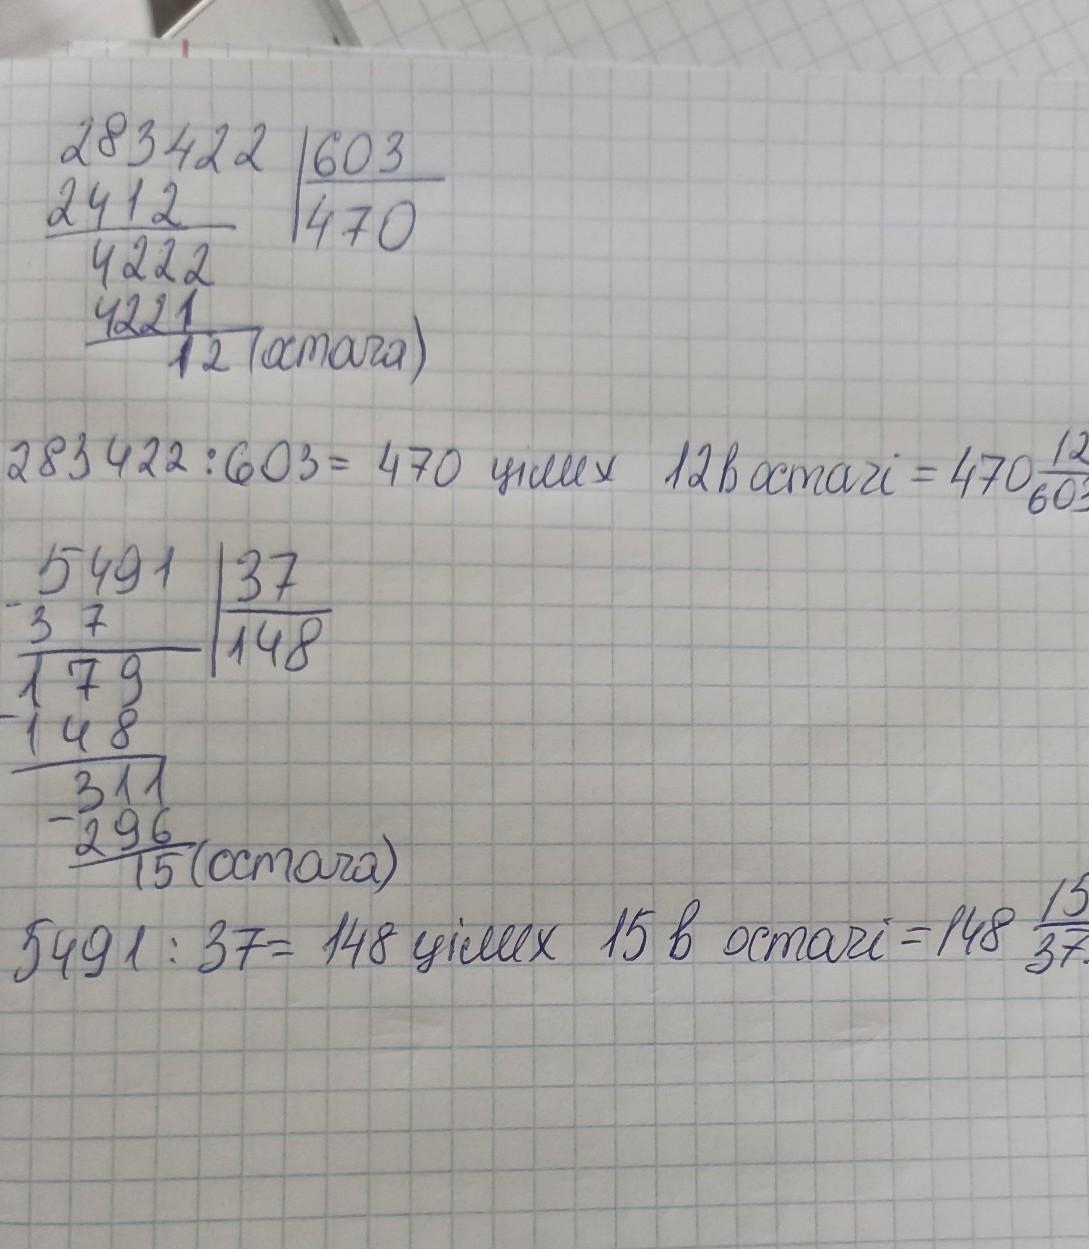 283422 | 603
2412 | 470
4222
4221
12 (остача)
283422 : 603 = 470 цілих 12 в остачі = 470 12/603
5491 | 37
- 37 | 148
179
- 148
311
- 296
15 (остача)
5491 : 37 = 148 цілих 15 в остачі = 148 15/37